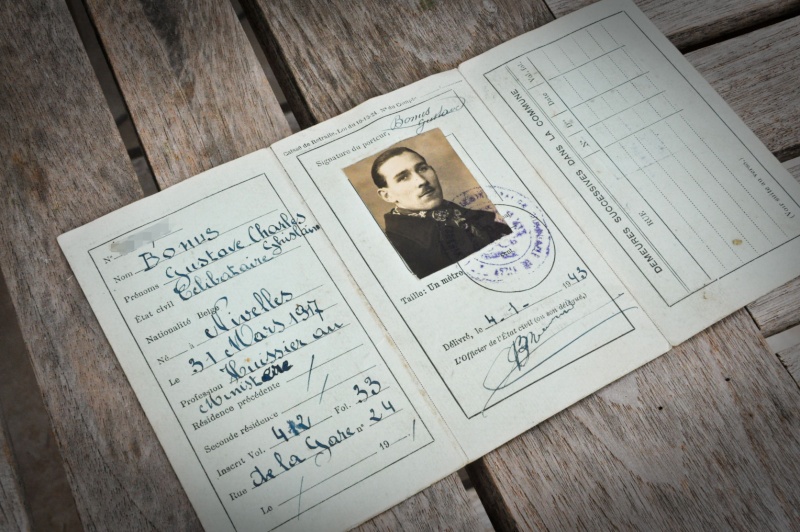 N°
Nom Bonus
Prénoms Gustave Charles
Ghislain
État civil Célibataire
Nationalité Belge
Né à Nivelles
Le 31 Mars 1917
Profession Huissier au
Ministère
Résidence précédente /
Seconde résidence /
Inscrit Vol. 412 Fol. 33
Rue de la Gare n° 24
Le / 19
Signature du porteur,
Bonus
Gustave
Taille: Un mètre
Délivré, le 4-1- 1943
L'Officier de l'État civil (ou son délégué,)
DEMEURES SUCCESSIVES DANS LA COMMUNE
RUE
N°
Date
Vol. Fol.
(Voir suite au verso.